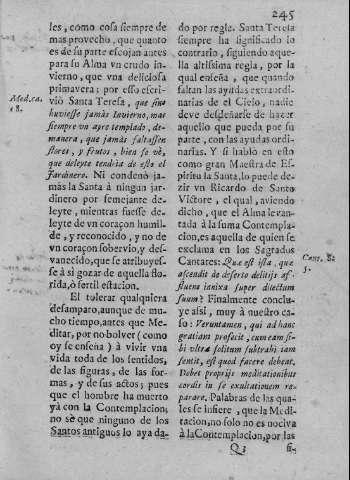 245
les, como cosa siempre de
mas provecho, que quanto
es de su parte escojan antes
para su Alma vn crudo in-
vierno, que vna deliciosa
primavera; por esso escri-
viò Santa Teresa, que sino
huviesse jamàs Invierno, mas
siempre vn ayre templado, de-
manera, que jamàs faltassen
flores, y frutos, bien se vè,
que deleyte tendria de esto el
Jardinero. Ni condenò ja-
màs la Santa à ningun jar-
dinero por semejante de-
leyte, mientras fuesse de-
leyte de vn coraçon humil-
de, y reconocido, y no de
vn coraçon sobervio, y des-
vanecido, que se atribuyes-
se à sì gozar de aquella flo-
rida, ò fertil estacion.
El tolerar qualquiera
desamparo, aunque de mu-
cho tiempo, antes que Me-
ditar, por no bolver (como
oy se enseña) à vivir vna
vida toda de los sentidos,
de las figuras, de las for-
mas, y de sus actos; pues
que el hombre ha muerto
yà con la Contemplacion,
no sè que ninguno de los
Santos antiguos lo aya da-
Med. ca.
18.
do por regle. Santa Teresa
siempre ha significado lo
contrario, siguiendo aque-
lla altissima regla, por la
qual enseña, que quando
faltan las ayudas extraordi-
narias de el Cielo, nadie
deve desdeñarse de hazer
aquello que pueda por su
parte, con las ayudas ordi-
narias. Y si hablò en esto
como gran Maestra de Es-
piritu la Santa, lo puede de-
zir vn Ricardo de Santo
Victore, el qual, aviendo
dicho, que el Alma levan-
tada à la suma Contempla-
cion, es aquella de quien se
exclama en los Sagrados
Cantares: Quæ est ista, quæ
ascendit de deserto delitijs af-
fluens innixa super dilectum
suum? Finalmente conclu-
ye assi, muy à nuestro ca-
so: Veruntamen, qui ad hanc
gratiam profecit, cum eam si-
bi vltra solitum subtrahi iam
sentit, est quod facere debeat.
Debet proprijs meditationibus
cordis in se exultationem re-
parare. Palabras de las qua-
les se infiere, que la Medi-
tacion, no solo no es nociva
à la Contemplacion, por las
Cant. 8.
5.
Q3